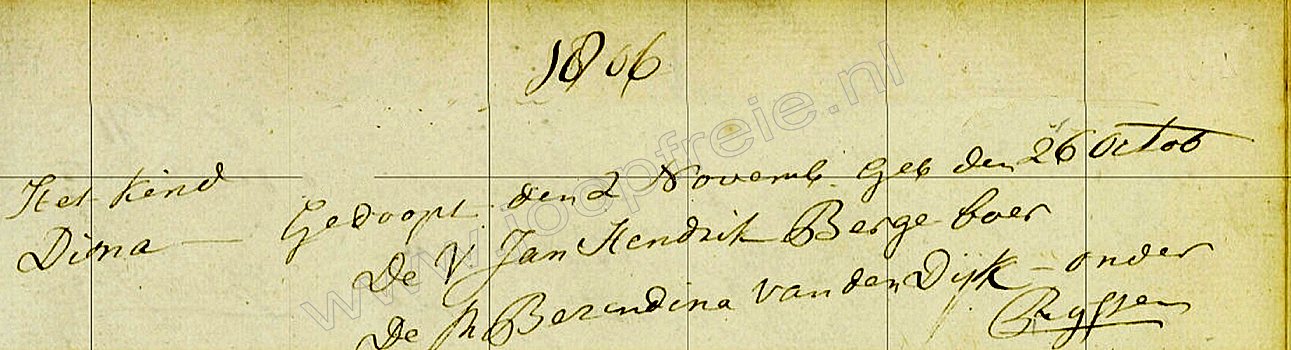 1806
Het kind Gedoopt den 2 Novemb. Geb den 26 Octob
Diena — De V Jan Hendrik Berge boer
De M Berendina van den Dijk - onder
Ryssen
www.joopfreie.nl